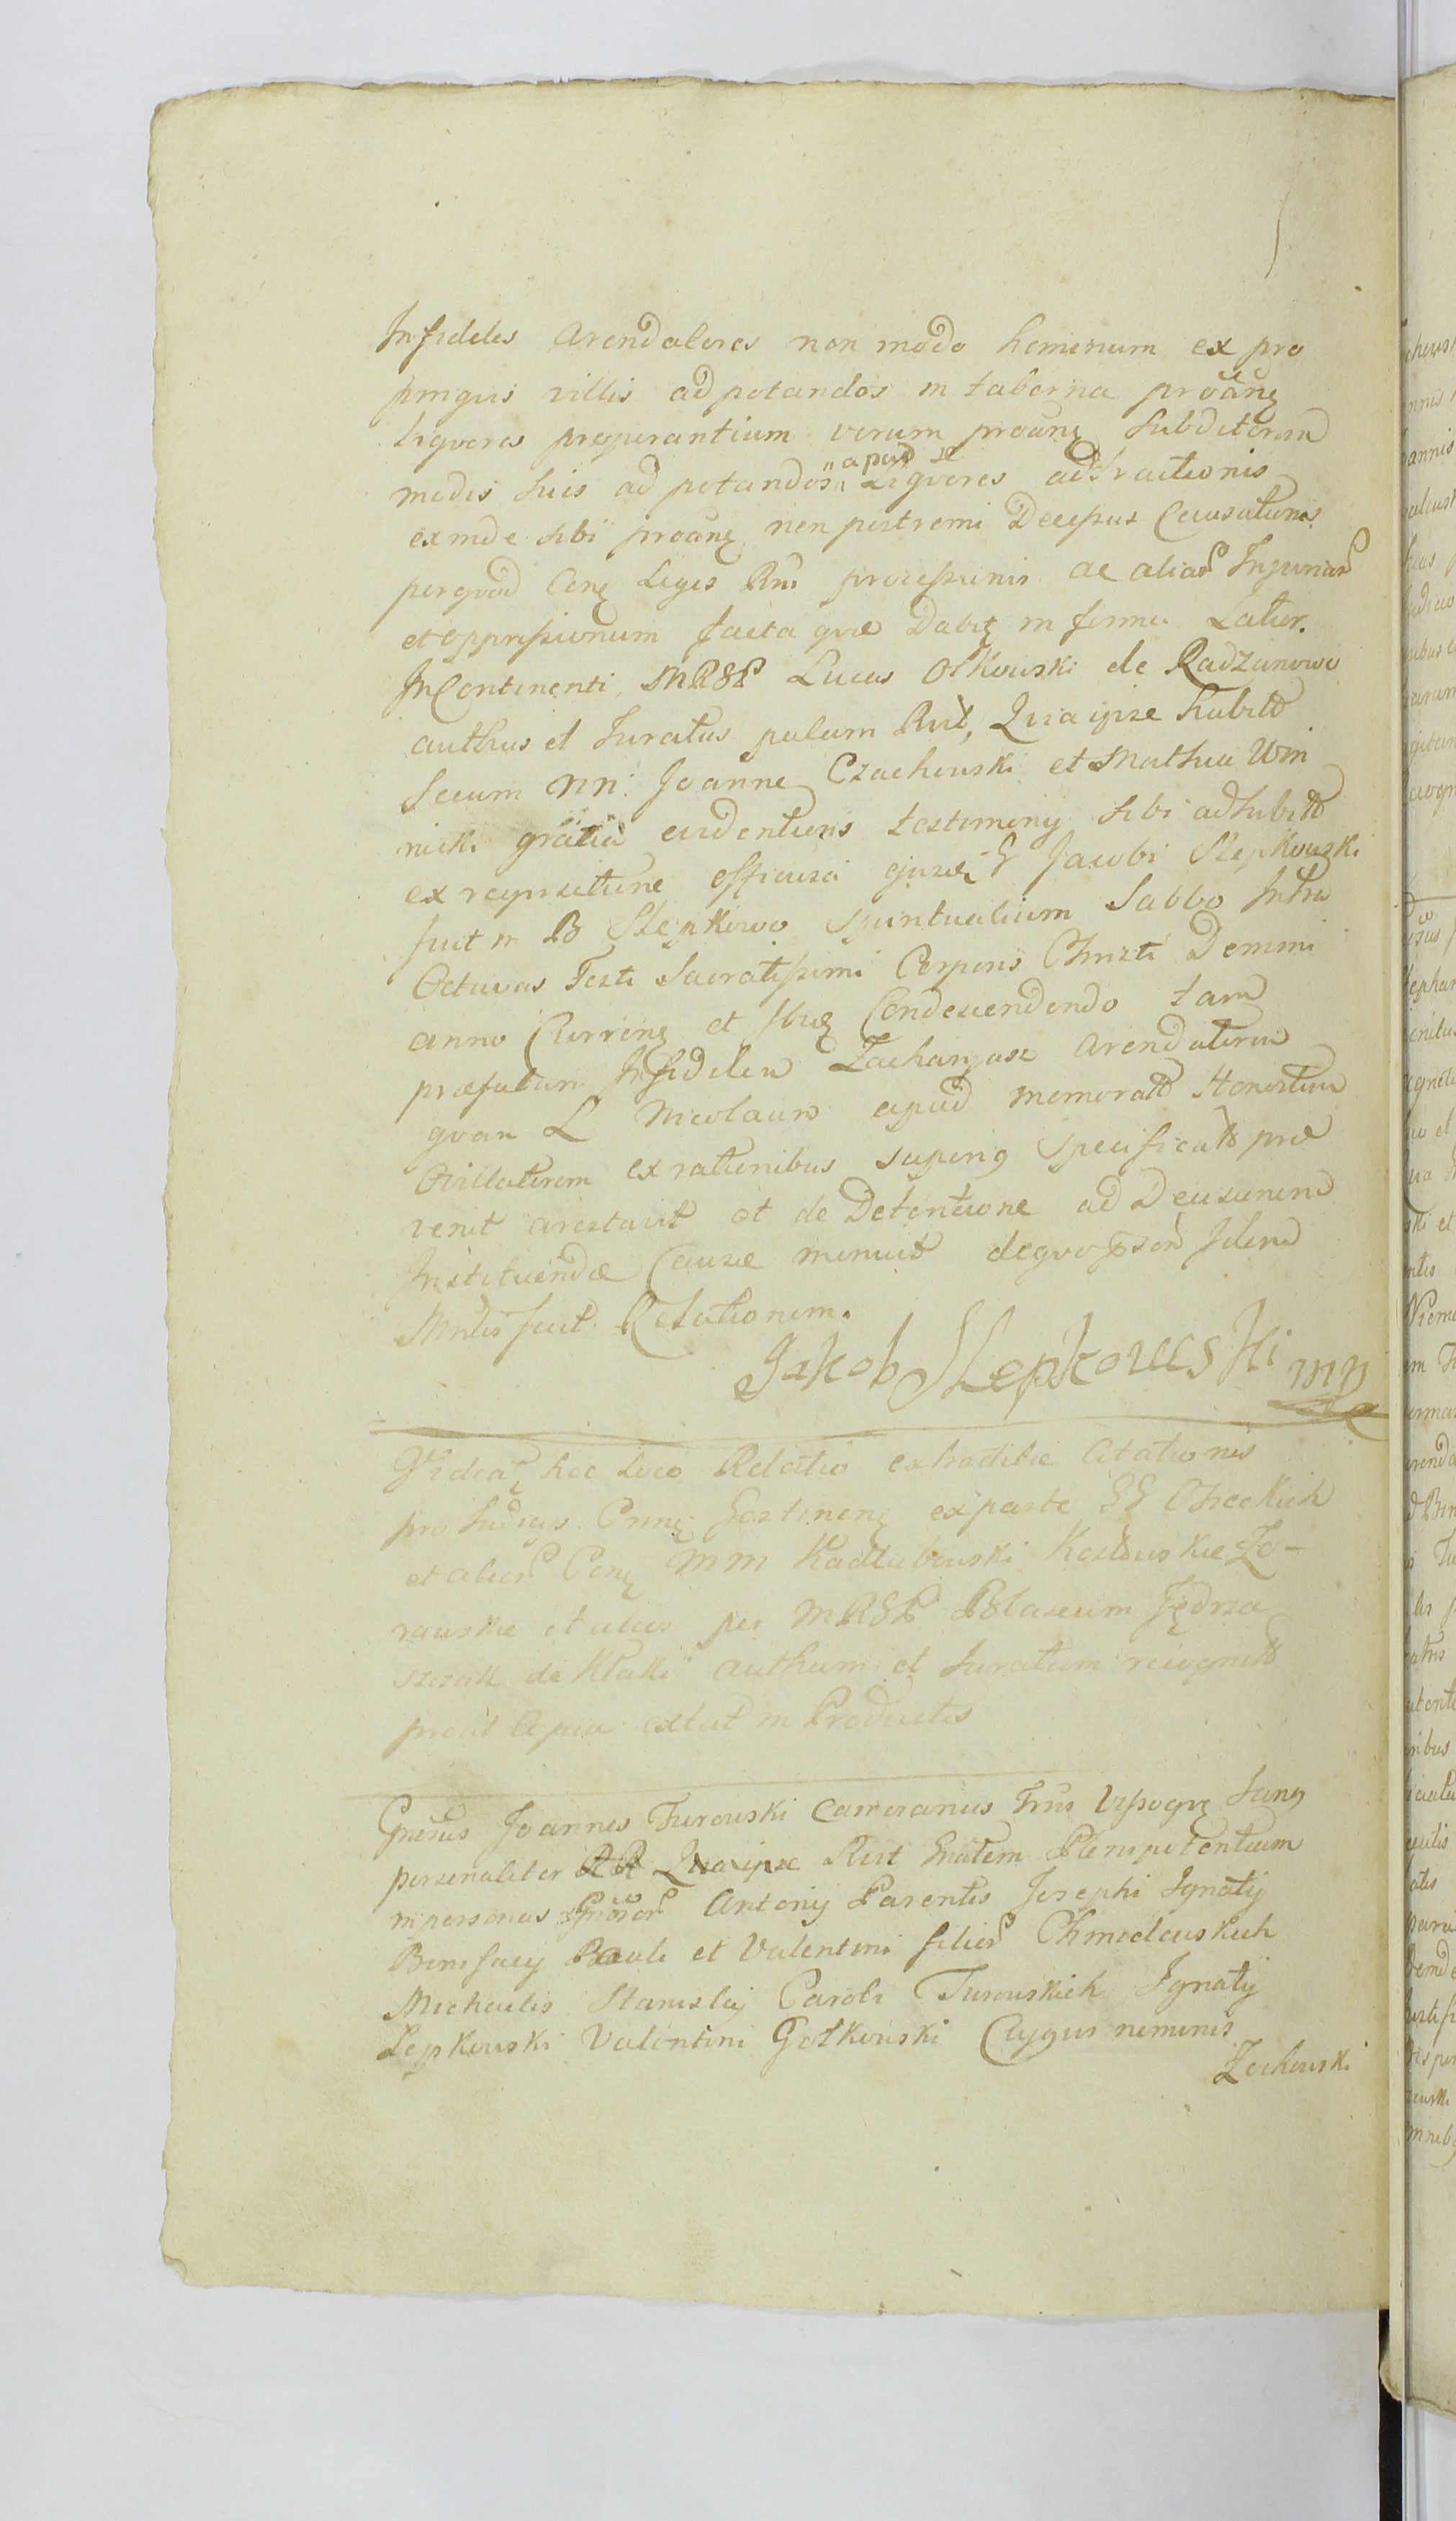 Infideles Arendatores non modo hominum ex pro
pinquis villis ad potandos in taberna proãnę
liqvores properantium verum proanę Subditorum
modis suis ad potandos "apud se" Liqvores adstractionis
exinde sibi proãnę non postremi Decessus Causationis
perqvod Cenę Leges Rni processionis ac aliar Injuriar
et oppressionum facta qvæ Dabitę in termi. Latior.
In Continenti MRSP Lucas Olkowski de Radzanowo
authus et Juratus palam Rvit, Quia ipse habito
Secum NN. Joanne Czachowski et Mathia Win
nicki gratia evidentioris testimonij sibi adhibito
ex reqvisitione officiosa ejusdę G Jacobi Slepkowski
fuit in B Slepkowo Spiritualium Sabbo Intra
Octavas Festi Sacratissimi Corporis Christi Domini
anno Currenę et ibidę Condescendendo tam
præfatum Infidelem Zacharyasz Arendatorem
qvam L Nicolaum apud memorato Honestum
Ovillatorem ex rationibus superių Specificatis præ
venit arestavit et de Detentione ad Decisionem
Instituendæ Causæ monuit deqvo pson Idem
Mnlis fecit Relationem.
Jakob Slepkowski mp
Videatę hoc Loco Relatio extraditæ Citationis
pro Judicijs Cnnę Gostinenę ex parte GG Olszeckich
et alior Conę MM Kadłubowski Kozłowskie Zo-
rawskie et alios per MRSP Blaseum Jędrza
szczak de Kłaki authum et Juratum recognito
prout Copia extat in Productis
Gnerosus Joannes Turowski Camerarius Trris Vissogrę Sanų
personaliter Quia ipse Rsit Gnatem Plenipotentiam
in personas Gnosor Antonij Parentis Josephi Ignatij
Bonifacij Pauli et Valentini filior Chmielewskich
Michaelis Stanislaj Caroli Turowskich Ignatij
Lepkowski Valentini Gołkowski Cuyqus nominis
Zochowski